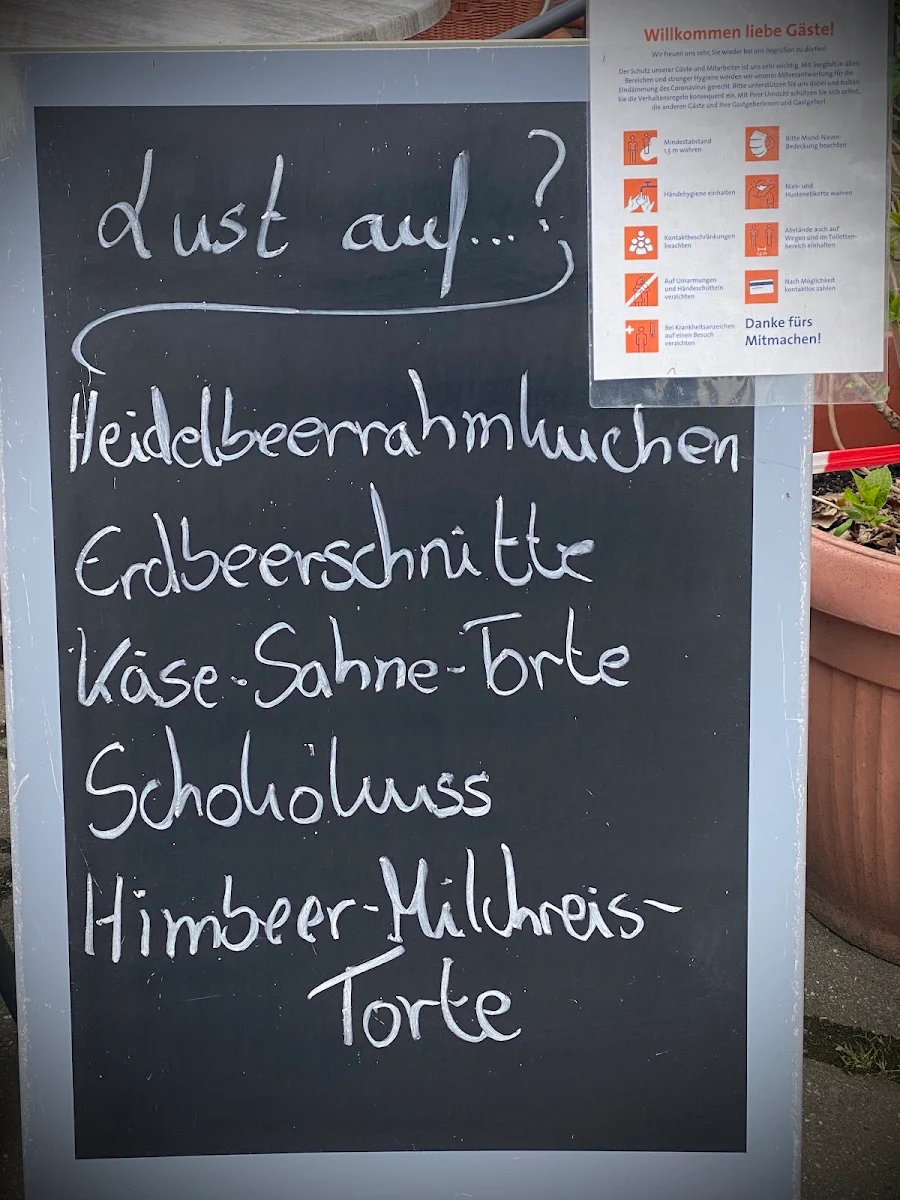 Willkommen liebe Gäste!
Wir freuen uns sehr, Sie wieder bei uns begrüßen zu dürfen!
Der Schutz unserer Gäste und Mitarbeiter ist uns sehr wichtig. Mit Sorgfalt in allen
Bereichen und strenger Hygiene werden wir unserer Mitverantwortung für die
Eindämmung des Coronavirus gerecht. Bitte unterstützen Sie uns dabei und halten
Sie die Verhaltensregeln konsequent ein. Mit Ihrer Umsicht schützen Sie sich selbst,
die anderen Gäste und Ihre Gastgeberinnen und Gastgeber!
Mindestabstand
1,5 m wahren
Bitte Mund-Nasen-
Bedeckung beachten
Händehygiene einhalten
Nies- und
Hustenetikette wahren
Kontaktbeschränkungen
beachten
Abstände auch auf
Wegen und im Toiletten-
bereich einhalten
Auf Umarmungen
und Händeschütteln
verzichten
Nach Möglichkeit
kontaktlos zahlen
Bei Krankheitsanzeichen
auf einen Besuch
verzichten
Danke fürs
Mitmachen!
Lust auf...?
Heidelbeerrahmkuchen
Erdbeerschnitte
Käse-Sahne-Torte
Schokokuss
Himbeer-Milchreis-
Torte